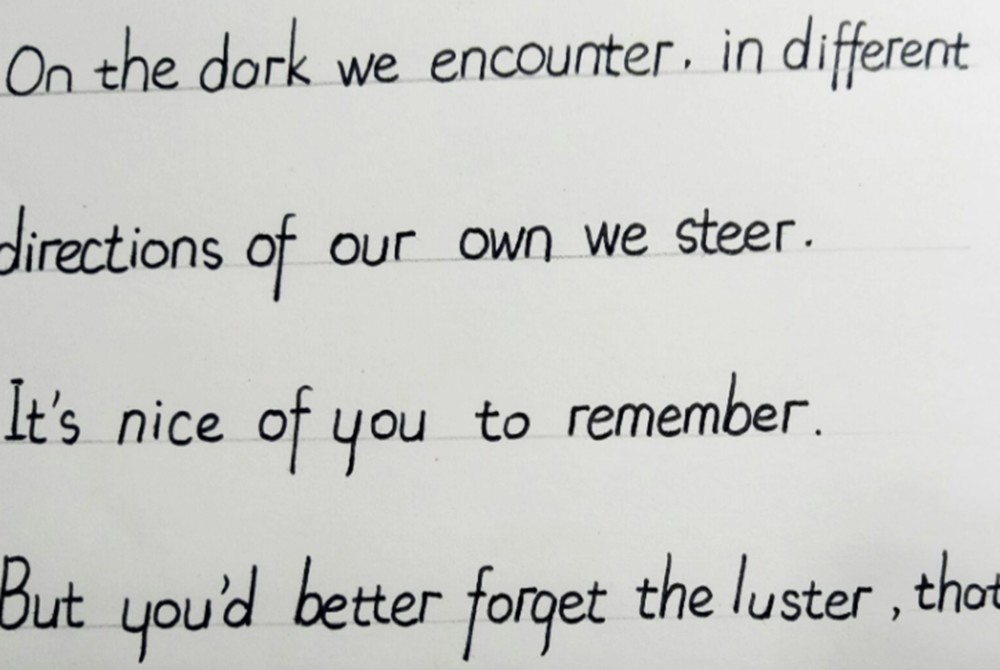 On the dark we encounter. in different
directions of our own we steer.
It's nice of you to remember.
But you'd better forget the luster, that